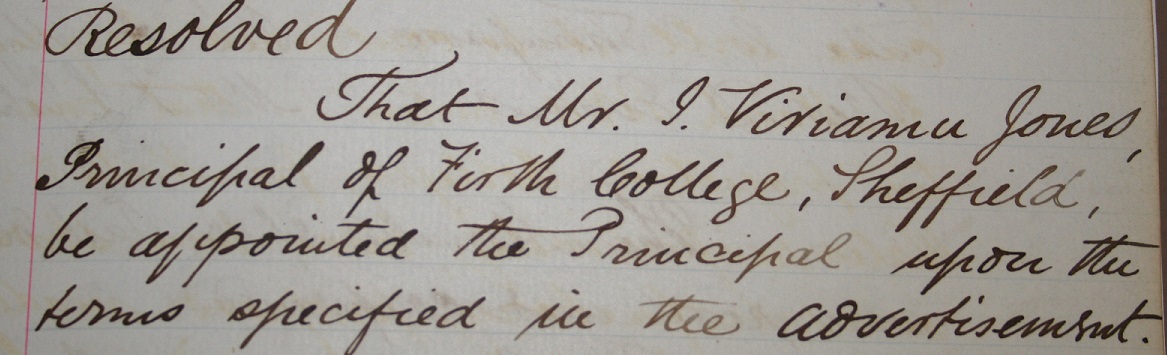 Resolved
That Mr. J. Viriamu Jones,
Principal of Firth College, Sheffield,
be appointed the Principal upon the
terms specified in the advertisement.